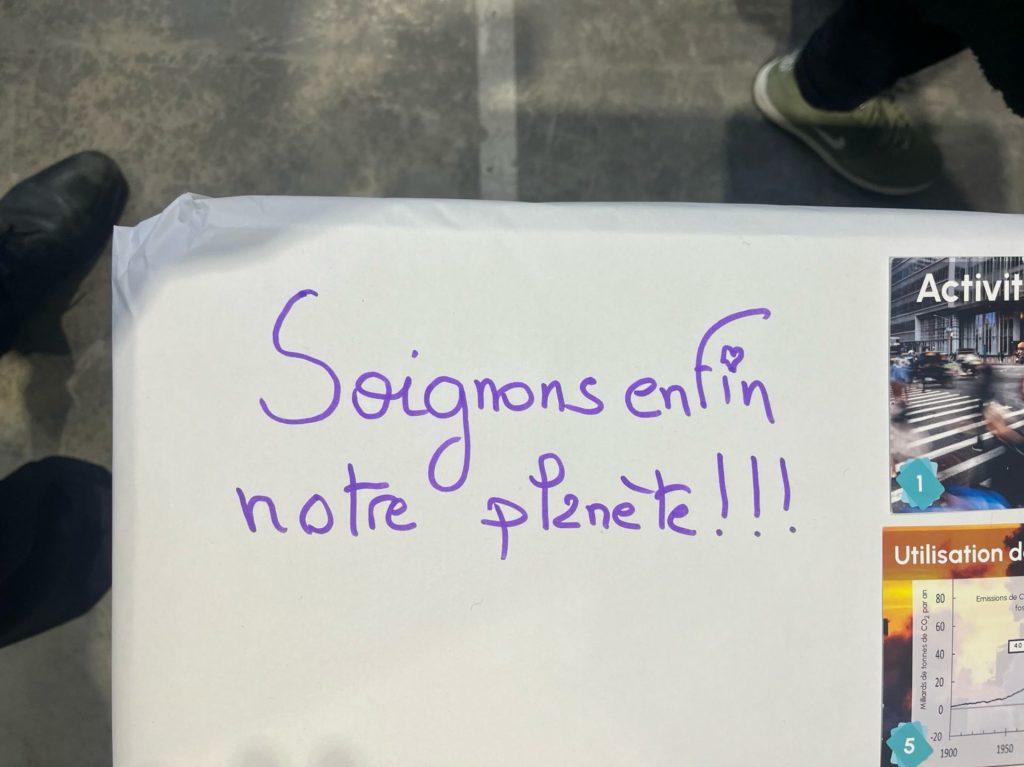 Soignons enfin
notre planète!!!
Activit
1
Utilisation d
Milliards de tonnes de CO2 par an
Emissions de C
fos
80
60
40
20
0
-20
40
1900
1950
5